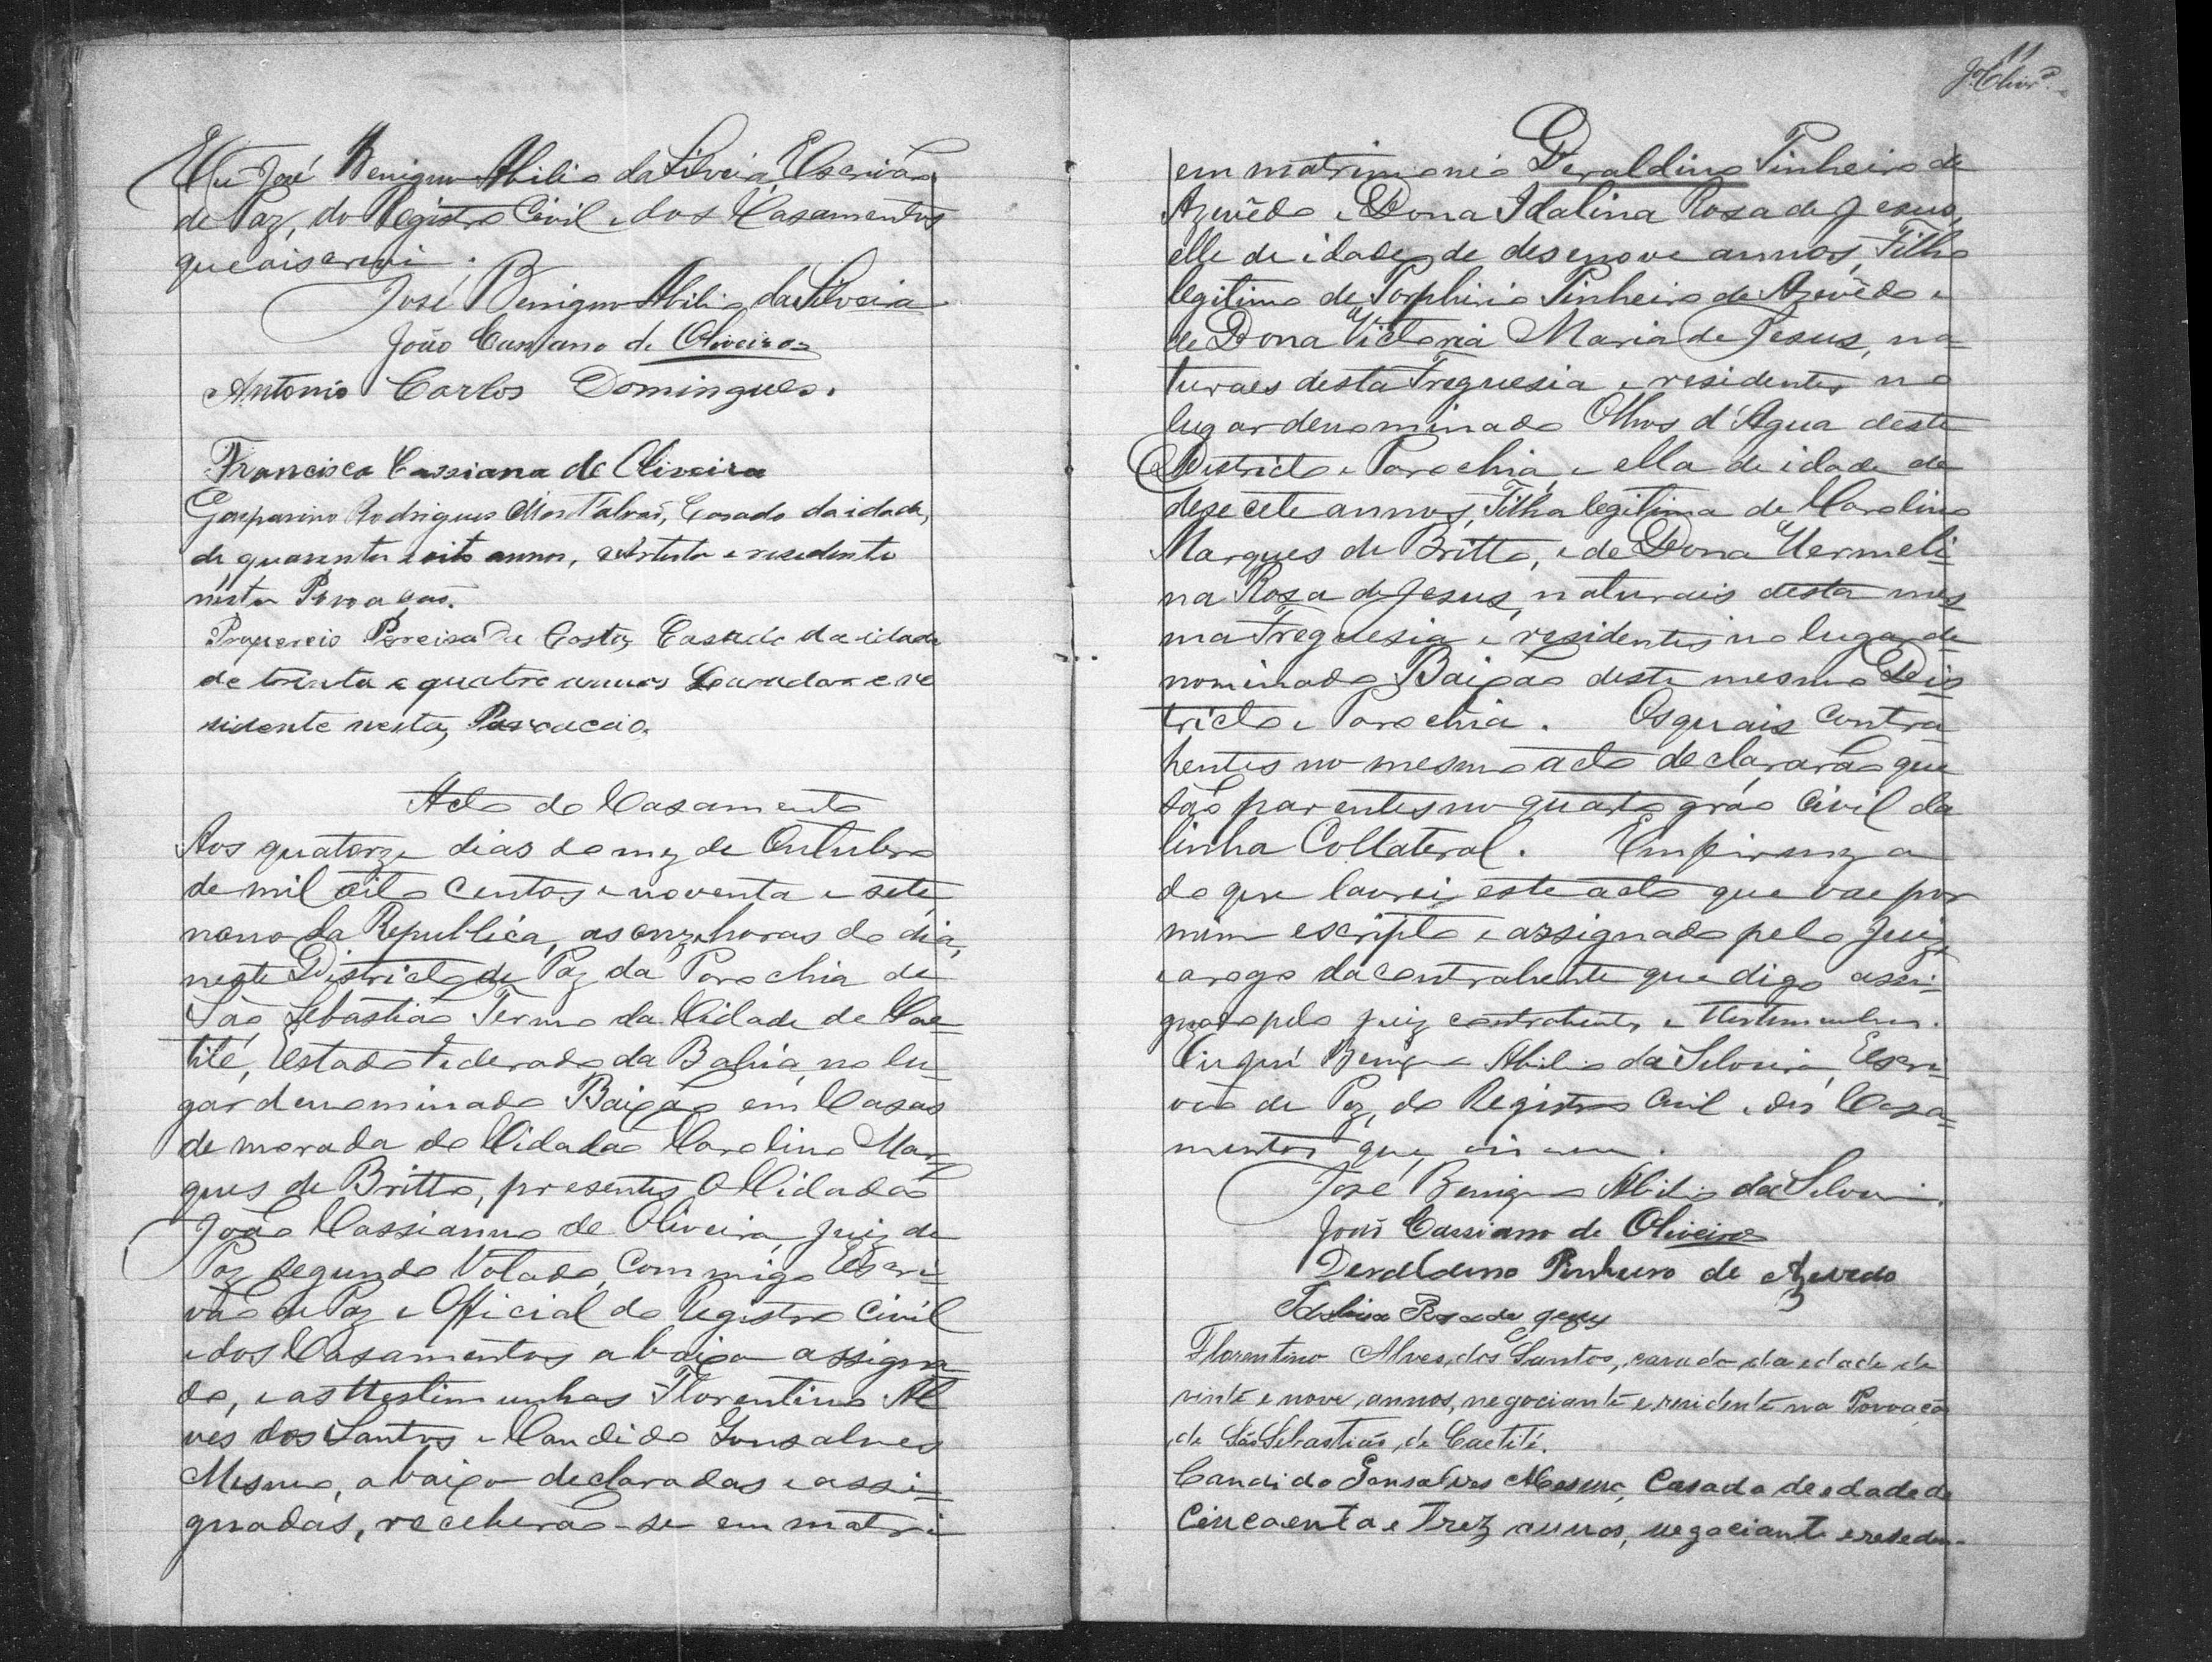 Eu José Benigno Abilio da Silveira, Escrivão
de Paz, do Registro Civil e dos Casamentos
que aiscrevi.
José Benigno Abilio da Silveira
João Cassiano de Oliveira
Antonio Carlos Domingues.
Francisca Cassiana de Oliveira
Gasparino Rodrigues Casado da idade,
de quarenta e oito annos, Artista e residente
nesta Povoação.
Pereira da Costa, Casado da idade
de trinta e quatro annos Lavrador e re
sidente nesta, Povoação.
Acto do Casamento
Aos quatorze dias do mez de Outubro
de mil oito centos e noventa e sete,
nono da Republica, as onze horas do dia,
neste Districto de Paz da Parochia de
São Sebastião Termo da Cidade de Cae
tité, Estado Federado da Bahia, no lu-
gar denominado Baixão em Casas
de morada do Cidadão Carolino Mar-
ques de Britto, presentes o Cidadão
João Cassianno de Oliveira, Juiz de
Paz segundo Votado, Commigo Escri
vão de Paz e Official do Registro Civil
e dos Casamentos abaixo assigna-
do, e as testimunhas Florentino Al
ves dos Santos e Candido Gonsalves
abaixo declaradas e assi-
gnadas, receberão-se em matri
11
em matrimonio Deraldino Pinheiro de
Azevêdo e Dona Idalina Rosa de Jesus,
elle de idade de desenove annos, Filho
legitimo de Porphirio Pinheiro de Azevêdo e
de Dona Victoria Maria de Jesus, na-
turaes desta Freguesia e residentes no
lugar denominado Olhos d'Agua deste
Districto e Parochia, e ella de idade de
desecete annos, Filha legitima de Carolino
Marques de Britto, e de Dona Hermeli-
na Rosa de Jesus, naturais desta mes
ma Freguesia e residentes no lugar de
nominado Baixão deste mesmo Dis
tricto e Parochia. Os quais Contra
hentes no mesmo acto declararão que
são parentes no quarto gráo Civil da
linha Collateral. Em firmeza
do que lavrei este acto que vae por
mim escripto e assignado pelo Juiz,
e arogo da contrahente que digo assi-
gnado pelo Juiz contrahentes e testimunhas.
Eu José Benigno Abilio da Silveira, Escri-
vão de Paz, do Registro Civil e dos Casa-
mentos que
José Benigno Abilio da Silveira.
João Cassiano de Oliveira
Deraldino Pinheiro de Azevedo
Idalina Rosa de Jesus
Florentino Alves dos Santos, casado da edade de
vinte e nove, annos, negociante e residente na Povoação
de São Sebastião, de Caetité.
Candido Gonsalves Casado de edade de
Cincoenta e Trez annos, negociante e residen-